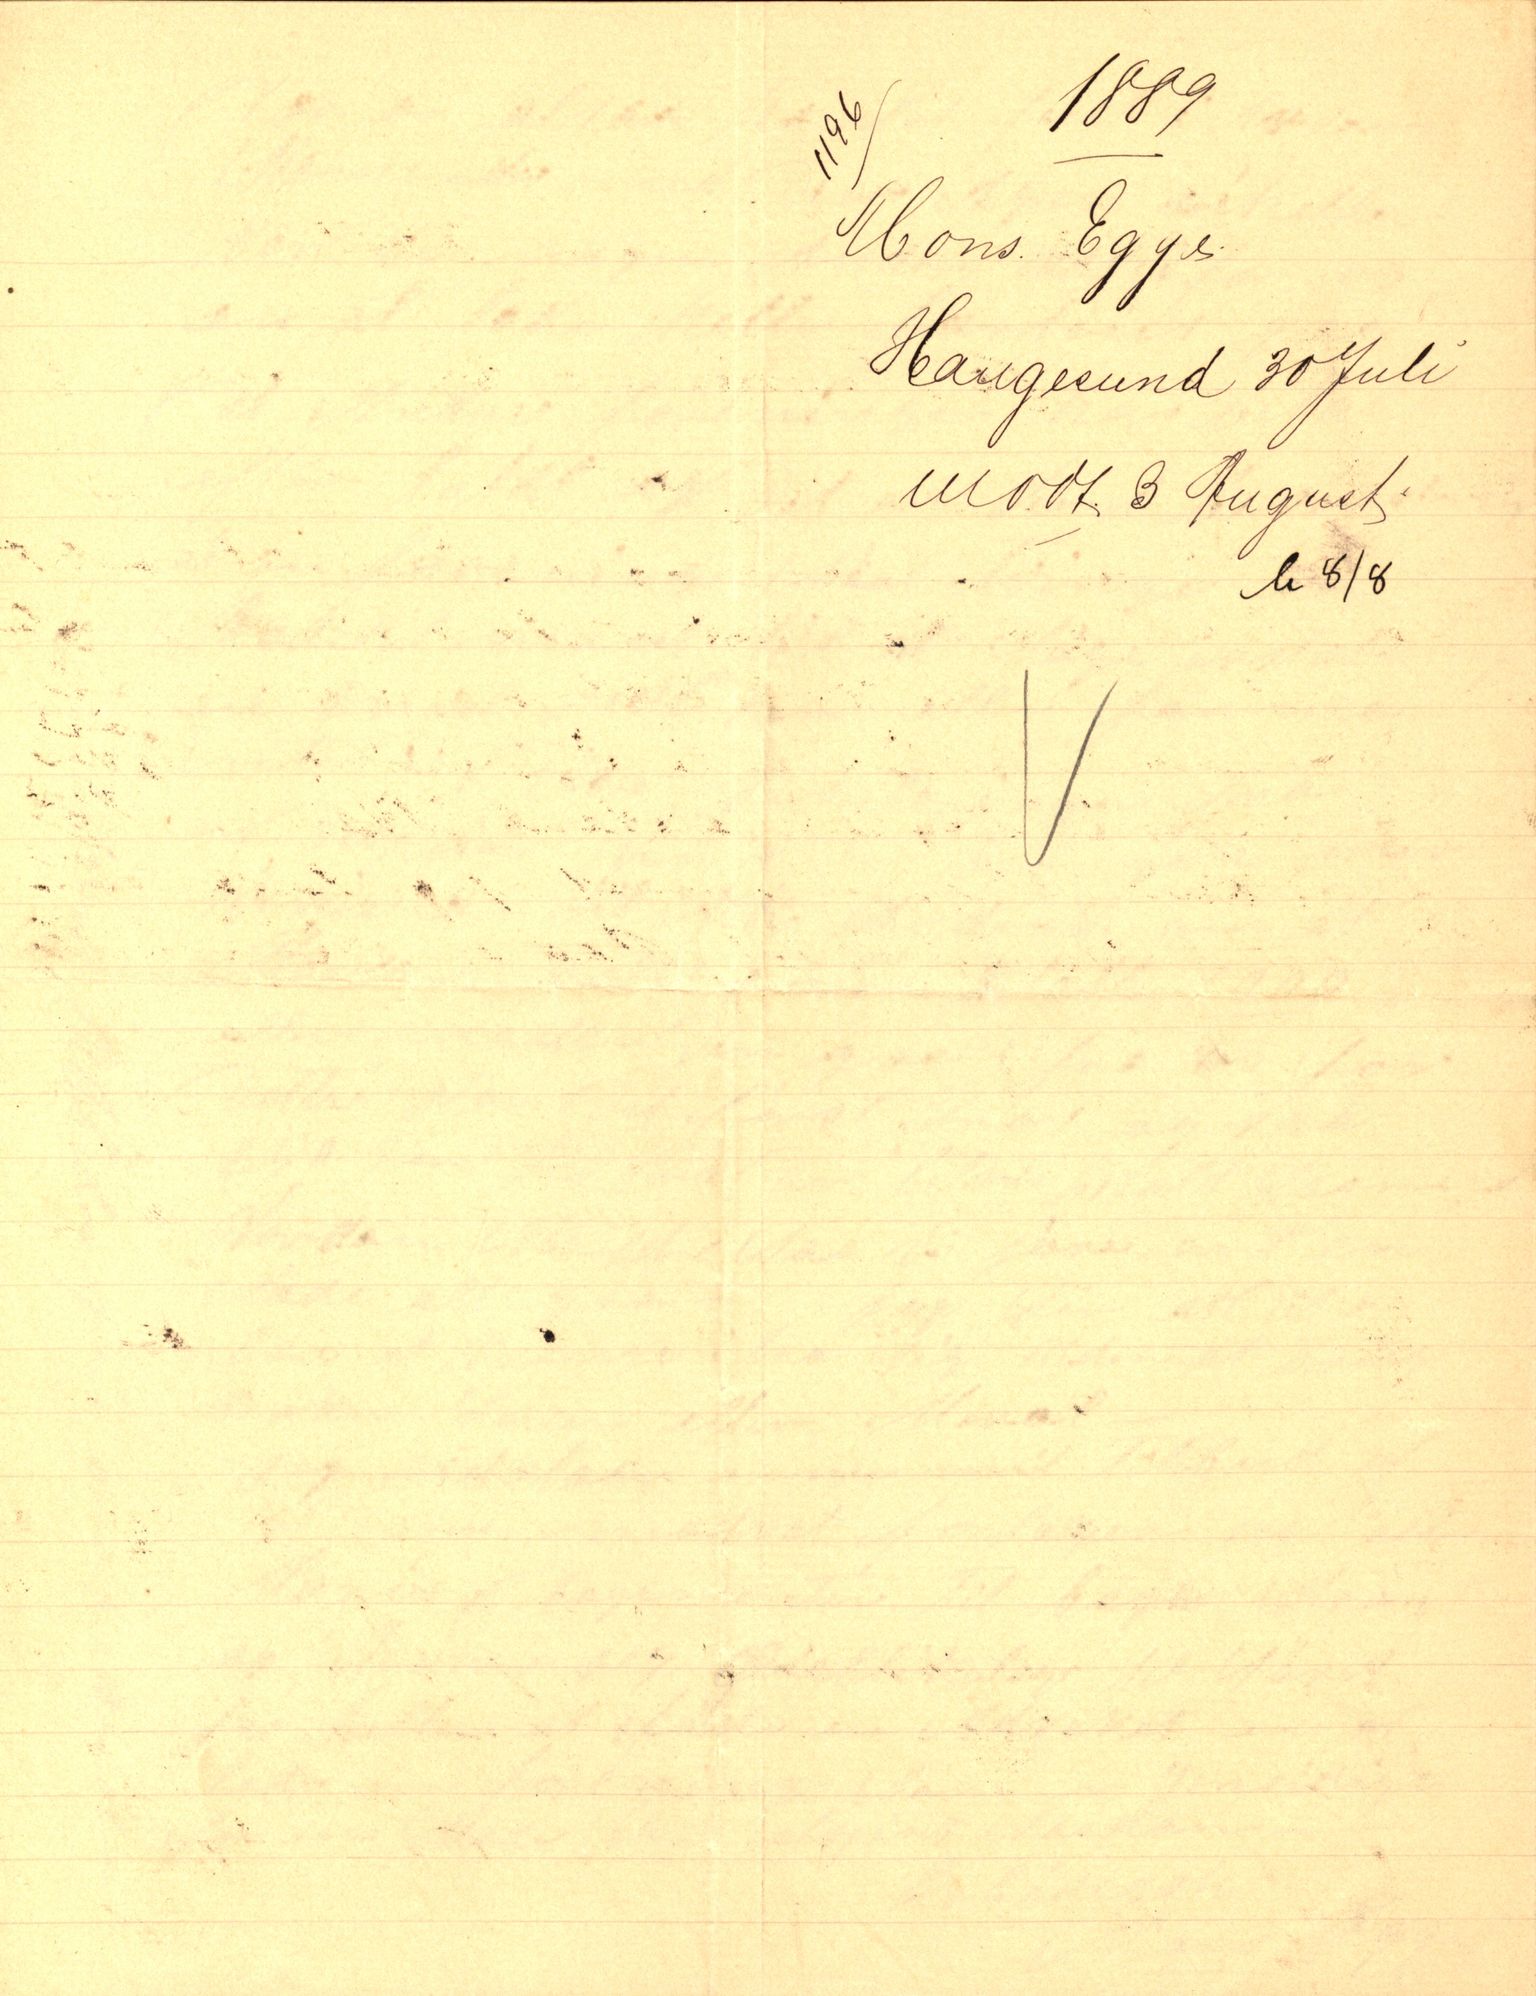 1889
1196
Mons. Egge
Haugesund 30 Juli
modt. 3 August
b 8/8